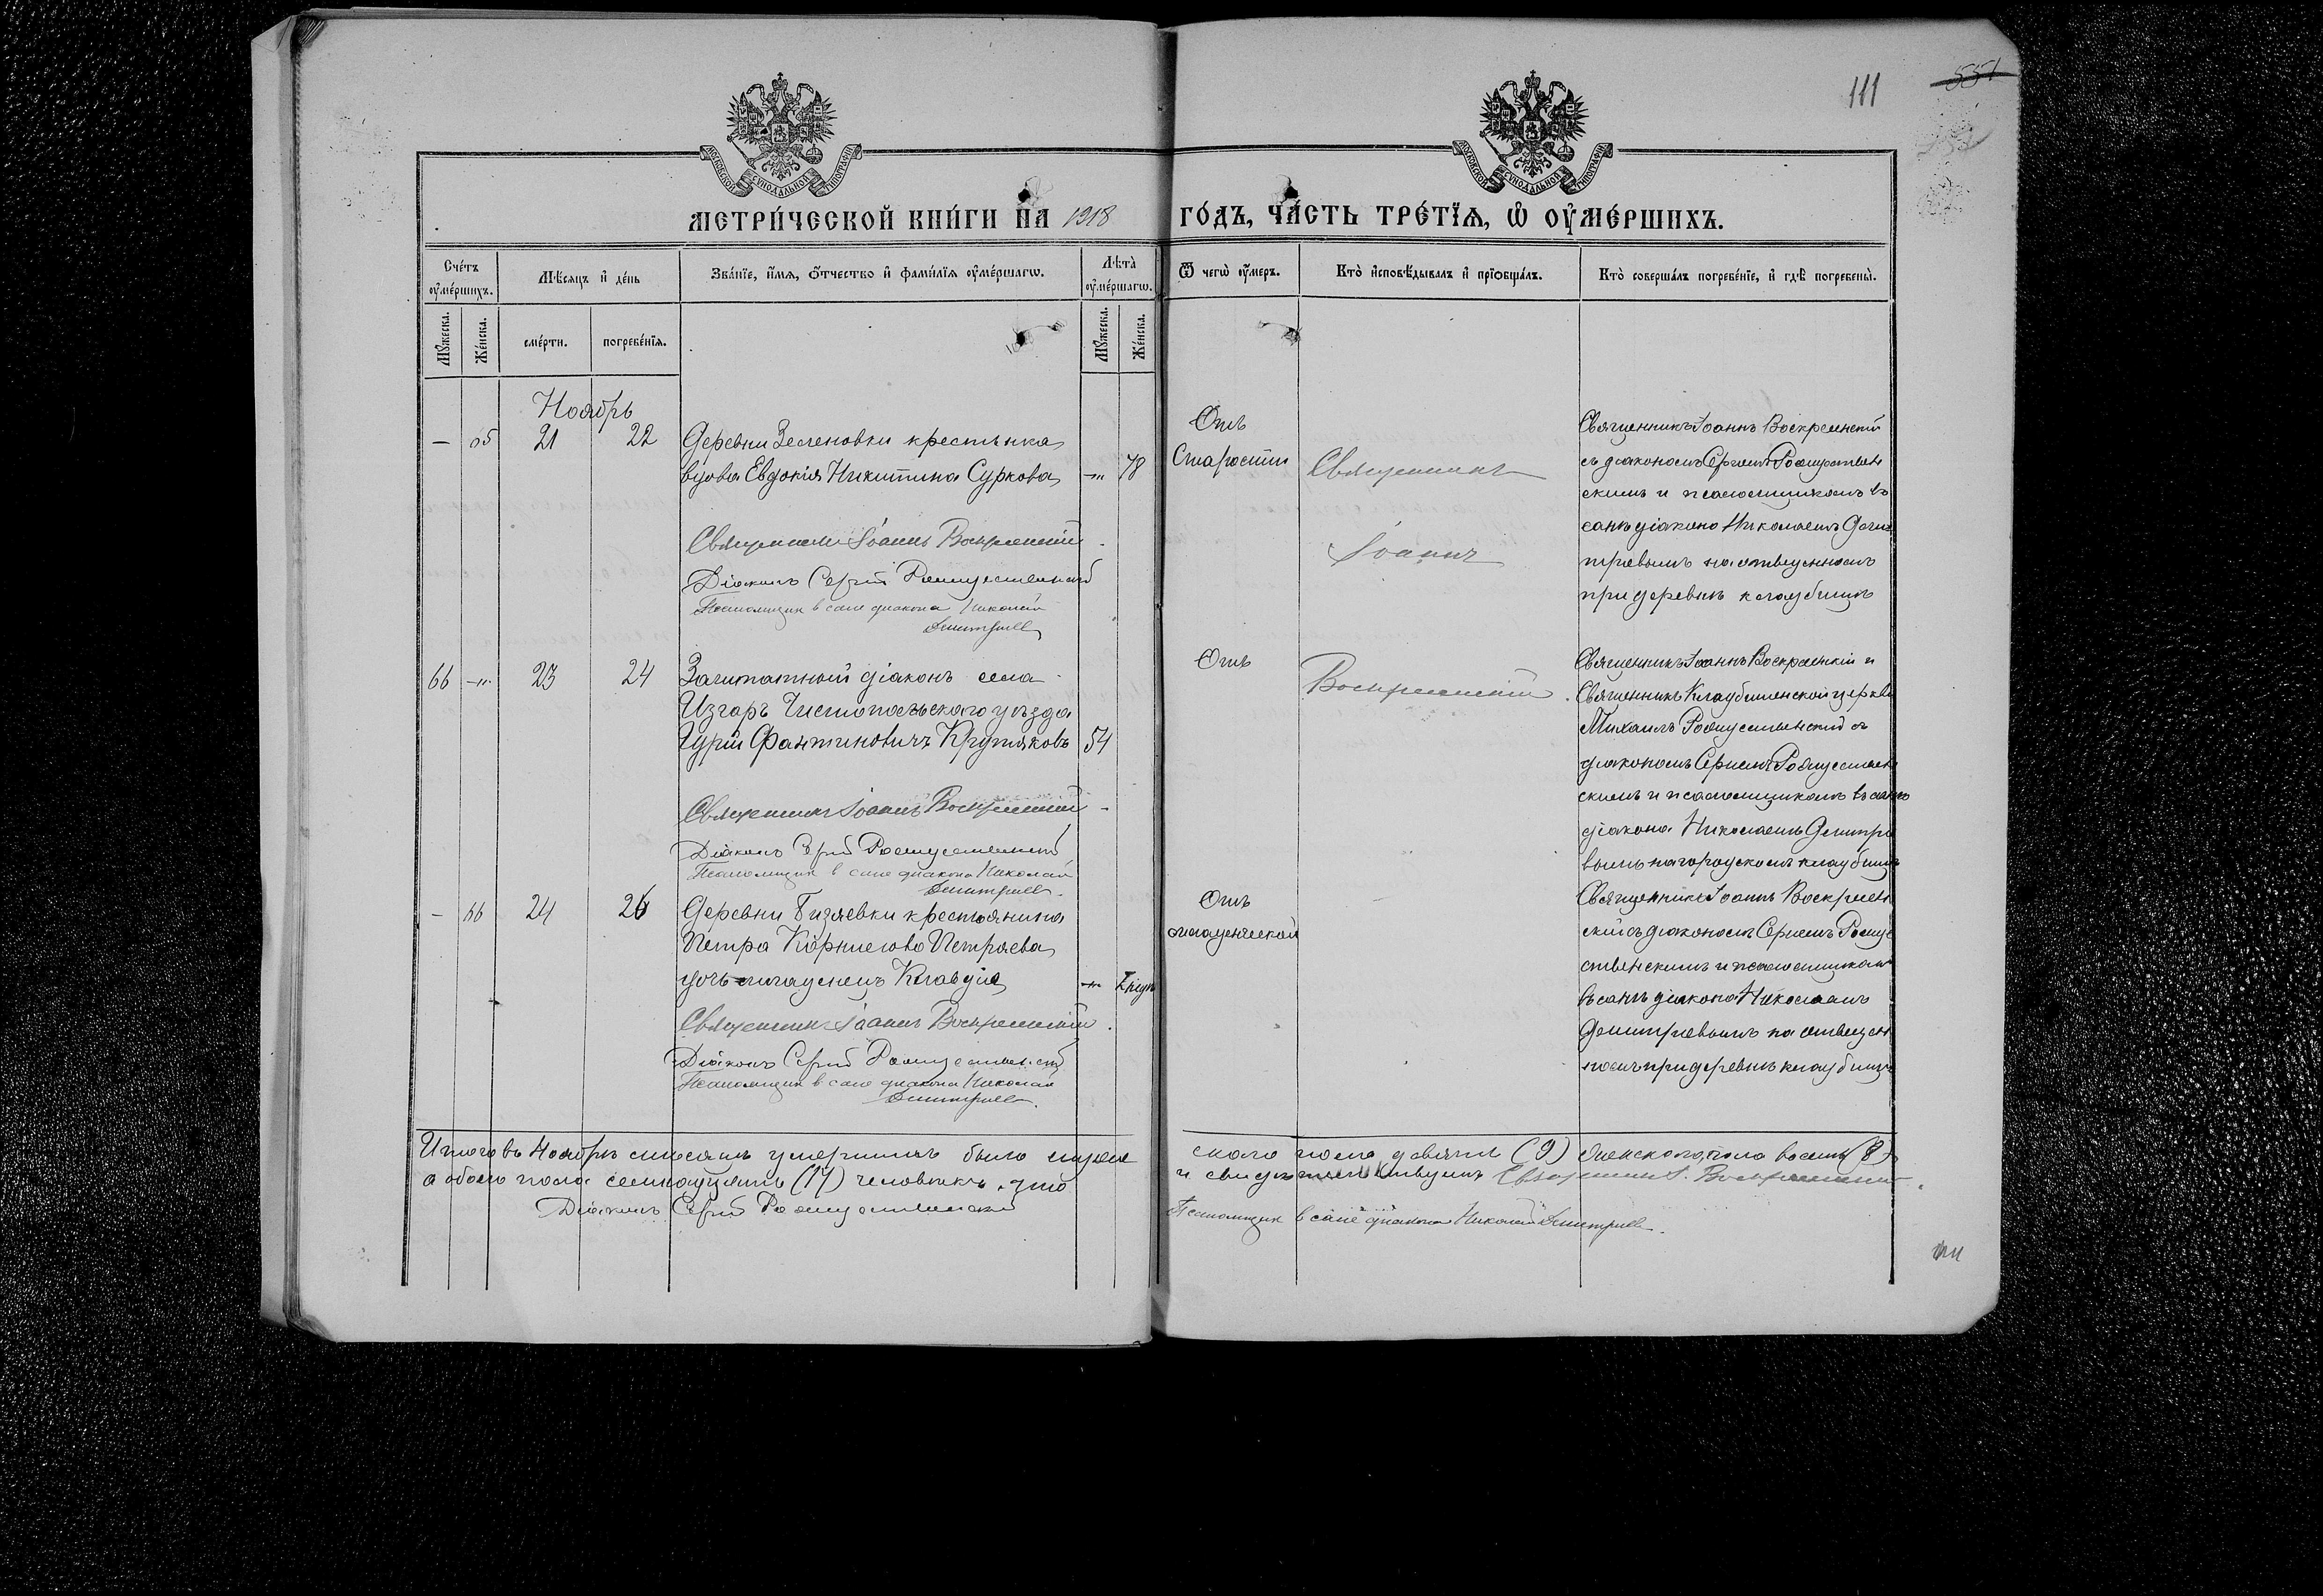 111
551
МОСКОВСКОЙ СѴНОДАЛЬНОЙ ТИПОГРАФІИ
МОСКОВСКОЙ СѴНОДАЛЬНОЙ ТИПОГРАФІИ
МЕТРИ́ЧЕСКОЙ КНИ́ГИ НА 1918 ГО́ДЪ, ЧА́СТЬ ТРЕ́ТІѦ, Ѽ ОУ҆МЕ́РШИХЪ.
Сче́тъ оу҆ме́ршихъ.
Мѣ́сяцъ и҆ де́нь
Зва́нїе, и҆́мѧ, ѻ҆́тчество и҆ фами́лїѧ оу҆ме́ршагѡ.
Лѣ́та̀ оу҆ме́ршагѡ.
Ѿ чегѡ̀ оу҆́меръ.
Кто̀ и҆сповѣ́дывалъ и҆ прїѡбща́лъ.
Кто̀ соверша́лъ погребе́нїе, и҆ гдѣ̀ погребены̀.
Мꙋ́жеска.
Же́нска.
сме́рти.
погребе́нїѧ.
Мꙋ́жеска.
Же́нска.
Ноябрь
— 65 21 22 Деревни Зеленовки крестьянка
вдова Евдокія Никитина Суркова —"— 78
Священникъ Іоаннъ Воскресенскій
Діаконъ Сергій Рождественскій
Псаломщик в сане диакона Николай
Димитриев
Отъ
Старости
Священникъ
Іоаннъ
Воскресенскій
Священникъ Іоаннъ Воскресенскій
съ діакономъ Сергіемъ Рождествен
скимъ и псаломщикомъ въ
санѣ діакона Николаемъ Дими
тріевымъ на отведенномъ
при деревнѣ кладбищѣ
66 —"— 23 24 Заштатный діаконъ села
Изгаръ Чистопольскаго уѣзда
Гурій Фантиновичъ Кругляковъ 54
Священникъ Іоаннъ Воскресенскій
Діаконъ Сергій Рождественскій
Псаломщик в сане диакона Николай
Димитриев
Отъ
Священникъ Іоаннъ Воскресенскій и
Священникъ Кладбищенской церкви
Михаилъ Рождественский съ
діакономъ Сергіемъ Рождествен
скимъ и псаломщикомъ въ санѣ
діакона Николаемъ Димитріе
вымъ на городскомъ кладбищѣ
— 66 24 26 Деревни Бизяевки крестьянина
Петра Корнилова Петряева
дочь-младенецъ Клавдія —"—
Священникъ Іоаннъ Воскресенскій
Діаконъ Сергій Рождественскій
Псаломщик в сане диакона Николай
Димитриев
Отъ
младенческой
Священникъ Іоаннъ Воскресен
скій съ діакономъ Сергіемъ Рожде
ственскимъ и псаломщикомъ
въ санѣ діакона Николаемъ
Димитріевымъ на отведен
номъ при деревнѣ кладбищѣ
Итого въ Ноябрѣ мѣсяцѣ умершихъ было мужескаго пола девять (9) женскаго пола восемь (8)
а обоего пола семнадцать (17) человѣкъ, что и свидѣтельствуемъ Священникъ І. Воскресенскій
Діаконъ Сергій Рождественский
Псаломщик в сане диакона Николай Димитриев